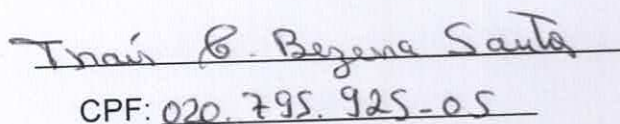 Thaís C. Bezerra Santos
CPF: 020.795.925-05